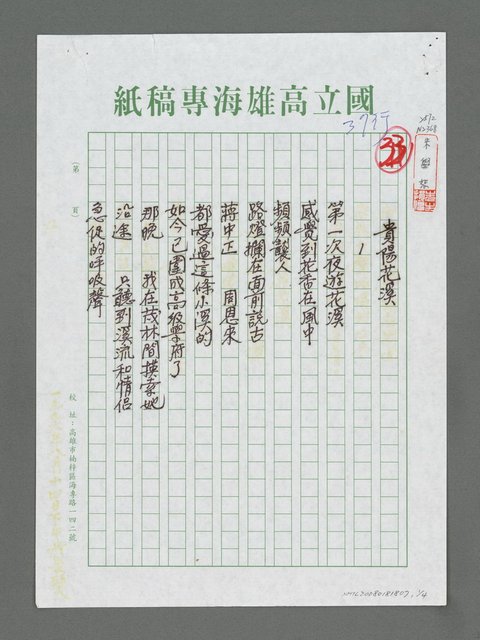 國立高雄海專稿紙
37行
33
朱學恕
貴陽花溪
1
第一次夜遊花溪
感覺到花香在風中
頻頻襲人
路燈攔在面前說古
蔣中正　周恩來
都愛過這條小溪的
如今已圍成高級學府了
那晚　我在茂林間摸索她
沿途　只聽到溪流和情侶
急促的呼吸聲
（第　頁）
校址：高雄市楠梓區海專路一四二號
NMTL20080181807, 1/4